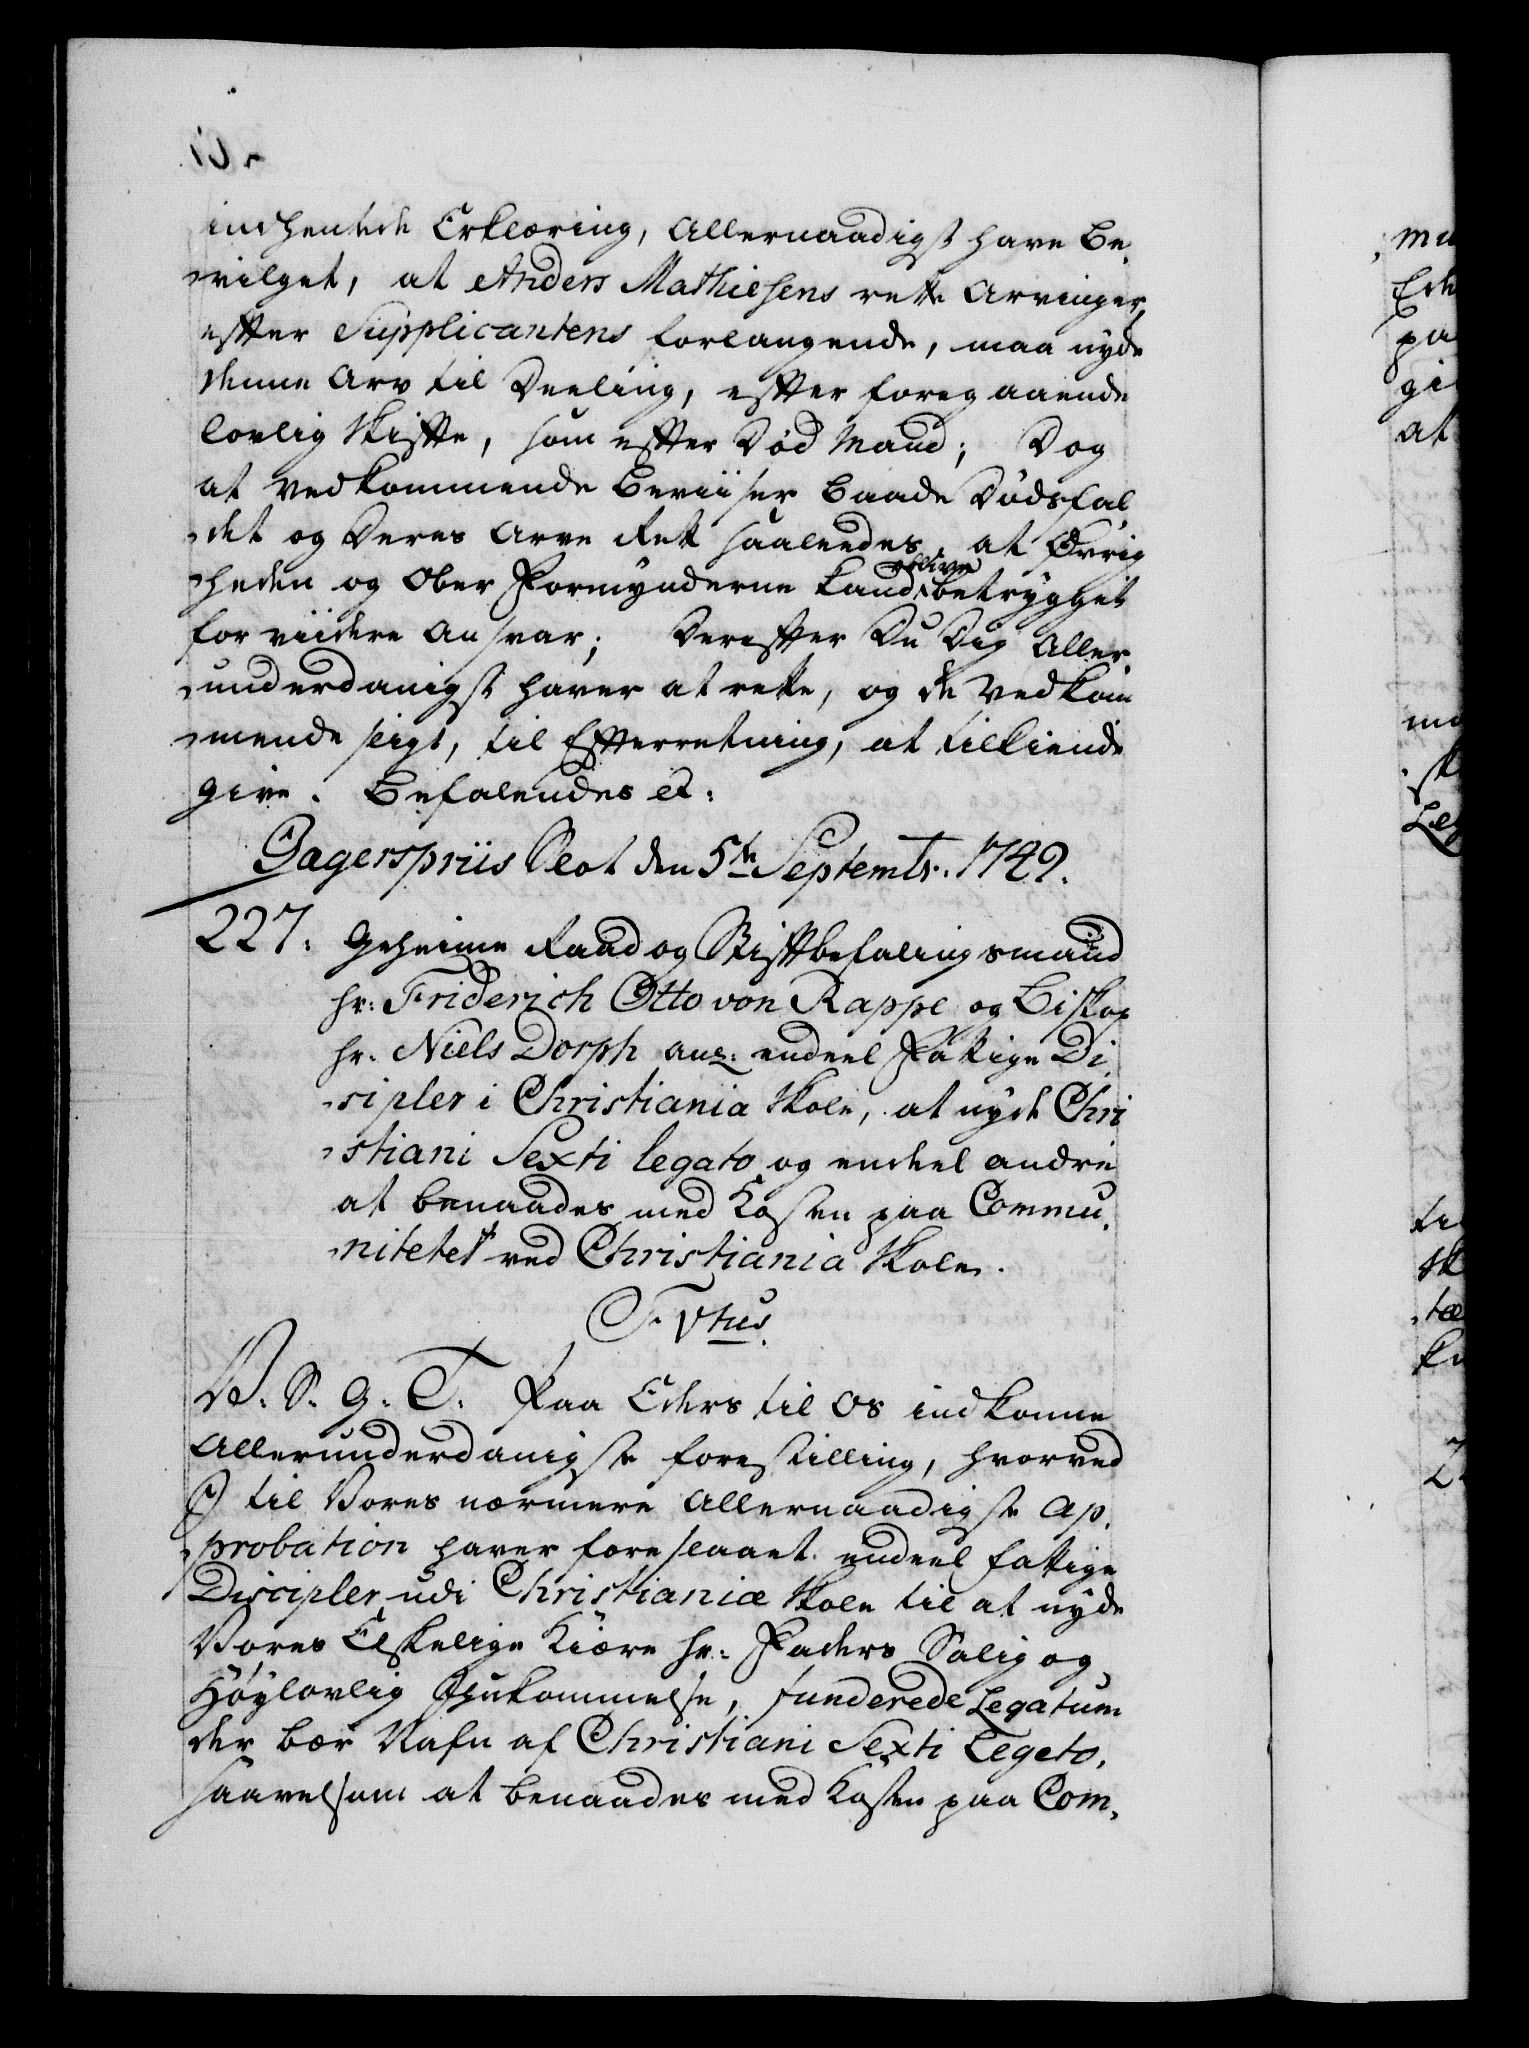 indhentede Erklæring, Allernaadigst have be,
vilget, at Anders Mathiesens rette Arvinger,
efter Supplicantens forlangende, maa nyde
denne Arv til Deeling, efter foregaaende
lovlig Skifte, som efter Død Mand; Dog
at Vedkommende beviiser baade Dødsfal
det og Deres Arve Rett saaleedes, at Øvrig
heden og Ober Formynderne kand blive betrygget
for viidere Ansvar; Derefter Du Dig Aller,
underdanigst haver at rette, og de Vedkom
mende sligt, til Efterretning, at tilkiende
give. Befalendes etc:
Jægerspriis Slot den 5te Septembr. 1749.
227. Geheime Raad og Stiftbefalingsmand
hr: Friderich Otto von Rappe og Biskop
hr. Niels Dorph ang: endeel Fattige Di,
sipler i Christiania Skole, at nyde Chri
stiani Sexti legato og endeel andre
at benaades med Kosten paa Commu,
nitetet ved Christiania Skole.
F. Vtus.
V. S. G. T. Paa Eders til Os indkomne
Allerunderdanigste forestilling, hvorved
I til Vores nærmere Allernaadigste Ap,
probation haver foreslaaet endeel fattige
Discipler udi Christianiæ Skole til at nyde
Vores Elskelige Kiære Hr: Faders Salig og
Høylovlig Ihukommelse, funderede Legatum
der bær Nafn af Christiani Sexti Legato,
saavelsom at benaades med Kosten paa Com,